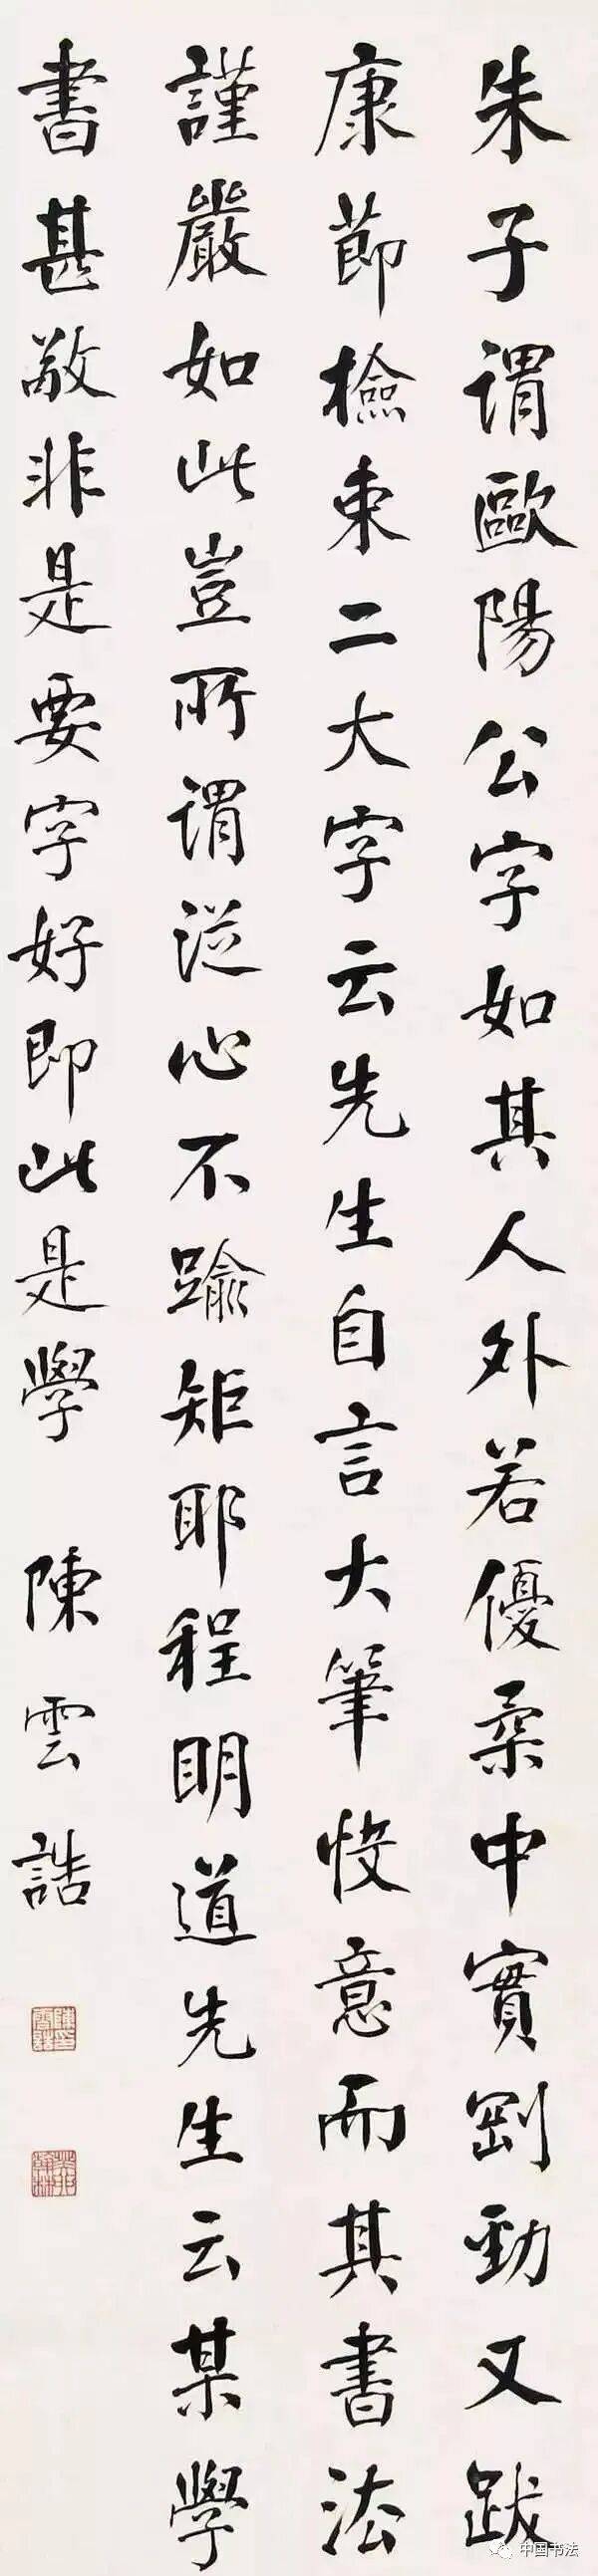 朱子謂歐陽公字如其人外若優柔中實剛勁又跋
康節檢束二大字云先生自言大筆快意而其書法
謹嚴如此豈所謂從心不踰矩耶程明道先生云某學
書甚敬非是要字好即此是學
陳雲誥
中国书法